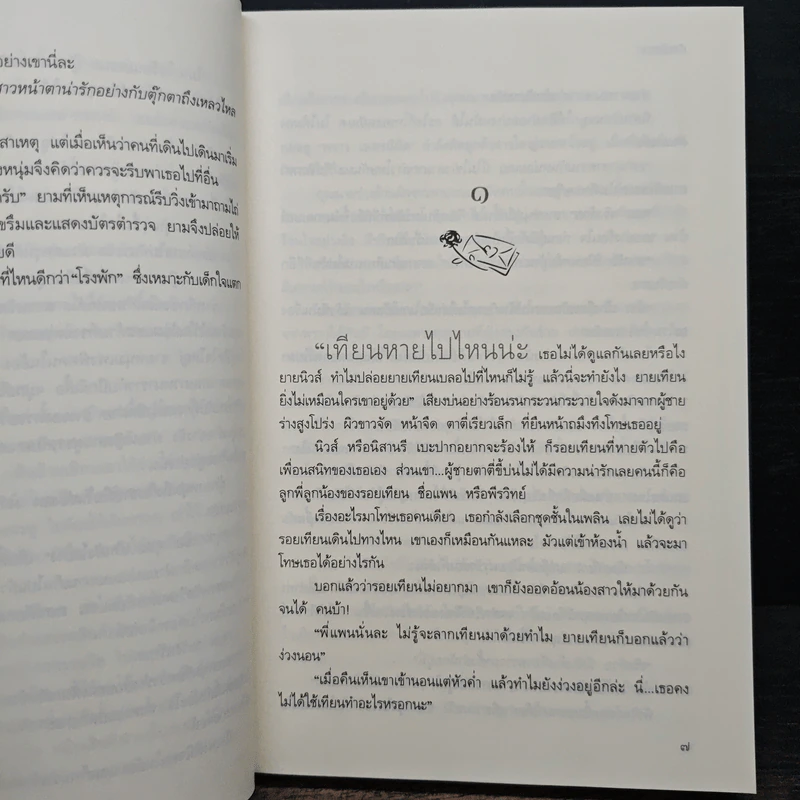 อย่างเขานี่ละ
สาวหน้าตาน่ารักอย่างกับตุ๊กตาถึงเหลวไหล
สาเหตุ แต่เมื่อเห็นว่าคนที่เดินไปเดินมาเริ่ม
งหนุ่มจึงคิดว่าควรจะรีบพาเธอไปที่อื่น
ครับ” ยามที่เห็นเหตุการณ์รีบวิ่งเข้ามาถามไถ่
ขรึมและแสดงบัตรตำรวจ ยามจึงปล่อยให้
ยดี
ที่ไหนดีกว่า “โรงพัก” ซึ่งเหมาะกับเด็กใจแตก
๑
“เทียนหายไปไหนน่ะ เธอไม่ได้ดูแลกันเลยหรือไง
ยายนิวส์ ทำไมปล่อยยายเทียนเบลอไปที่ไหนก็ไม่รู้ แล้วนี่จะทำยังไง ยายเทียน
ยิ่งไม่เหมือนใครเขาอยู่ด้วย” เสียงบ่นอย่างร้อนรนกระวนกระวายใจดังมาจากผู้ชาย
ร่างสูงโปร่ง ผิวขาวจัด หน้าจืด ตาตี่เรียวเล็ก ที่ยืนหน้าถมึงทึงโทษเธออยู่
นิวส์ หรือนิสานรี เบะปากอยากจะร้องไห้ ก็รอยเทียนที่หายตัวไปคือ
เพื่อนสนิทของเธอเอง ส่วนเขา...ผู้ชายตาตี่ขี้บ่นไม่ได้มีความน่ารักเลยคนนี้ก็คือ
ลูกพี่ลูกน้องของรอยเทียน ชื่อแพน หรือพีรวิทย์
เรื่องอะไรมาโทษเธอคนเดียว เธอกำลังเลือกชุดชั้นในเพลิน เลยไม่ได้ดูว่า
รอยเทียนเดินไปทางไหน เขาเองก็เหมือนกันแหละ มัวแต่เข้าห้องน้ำ แล้วจะมา
โทษเธอได้อย่างไรกัน
บอกแล้วว่ารอยเทียนไม่อยากมา เขาก็ยังออดอ้อนน้องสาวให้มาด้วยกัน
จนได้ คนบ้า!
“พี่แพนนั่นละ ไม่รู้จะลากเทียนมาด้วยทำไม ยายเทียนก็บอกแล้วว่า
ง่วงนอน”
“เมื่อคืนเห็นเขาเข้านอนแต่หัวค่ำ แล้วทำไมยังง่วงอยู่อีกล่ะ นี่...เธอคง
ไม่ได้ใช้เทียนทำอะไรหรอกนะ”
๗